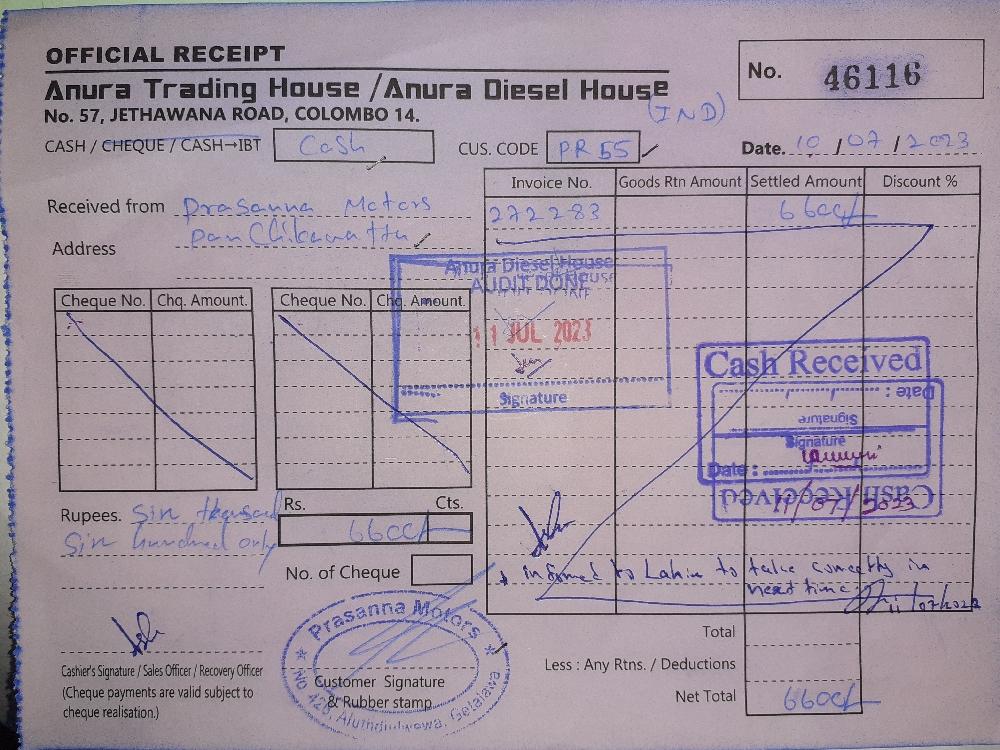 OFFICIAL RECEIPT
Anura Trading House /Anura Diesel House
(IND)
No. 57, JETHAWANA ROAD, COLOMBO 14.
No. 46116
CASH / CHEQUE / CASH→IBT Cash
CUS. CODE PR 55
Date. 10 / 07 / 2023
Received from Prasanna Motors
Address Panchikawatta
Invoice No. Goods Rtn Amount Settled Amount Discount %
272283 6600/-
Cheque No. Chq. Amount. Cheque No. Chq. Amount.
Anura Diesel House
AUDIT DONE
11 JUL 2023
Signature
Cash Received
Date :
Signature
Signature
Date :
11/07/2023
Cash Received
Rupees. Sin thousand
Sin hundred only
Rs. Cts.
6600/-
No. of Cheque
informed to Lahiru to take correctly in
next time
11/07/2023
Prasanna Motors
No 428, Galalawa.
Cashier's Signature / Sales Officer / Recovery Officer
(Cheque payments are valid subject to
cheque realisation.)
Customer Signature
& Rubber stamp
Total
Less : Any Rtns. / Deductions
Net Total 6600/-